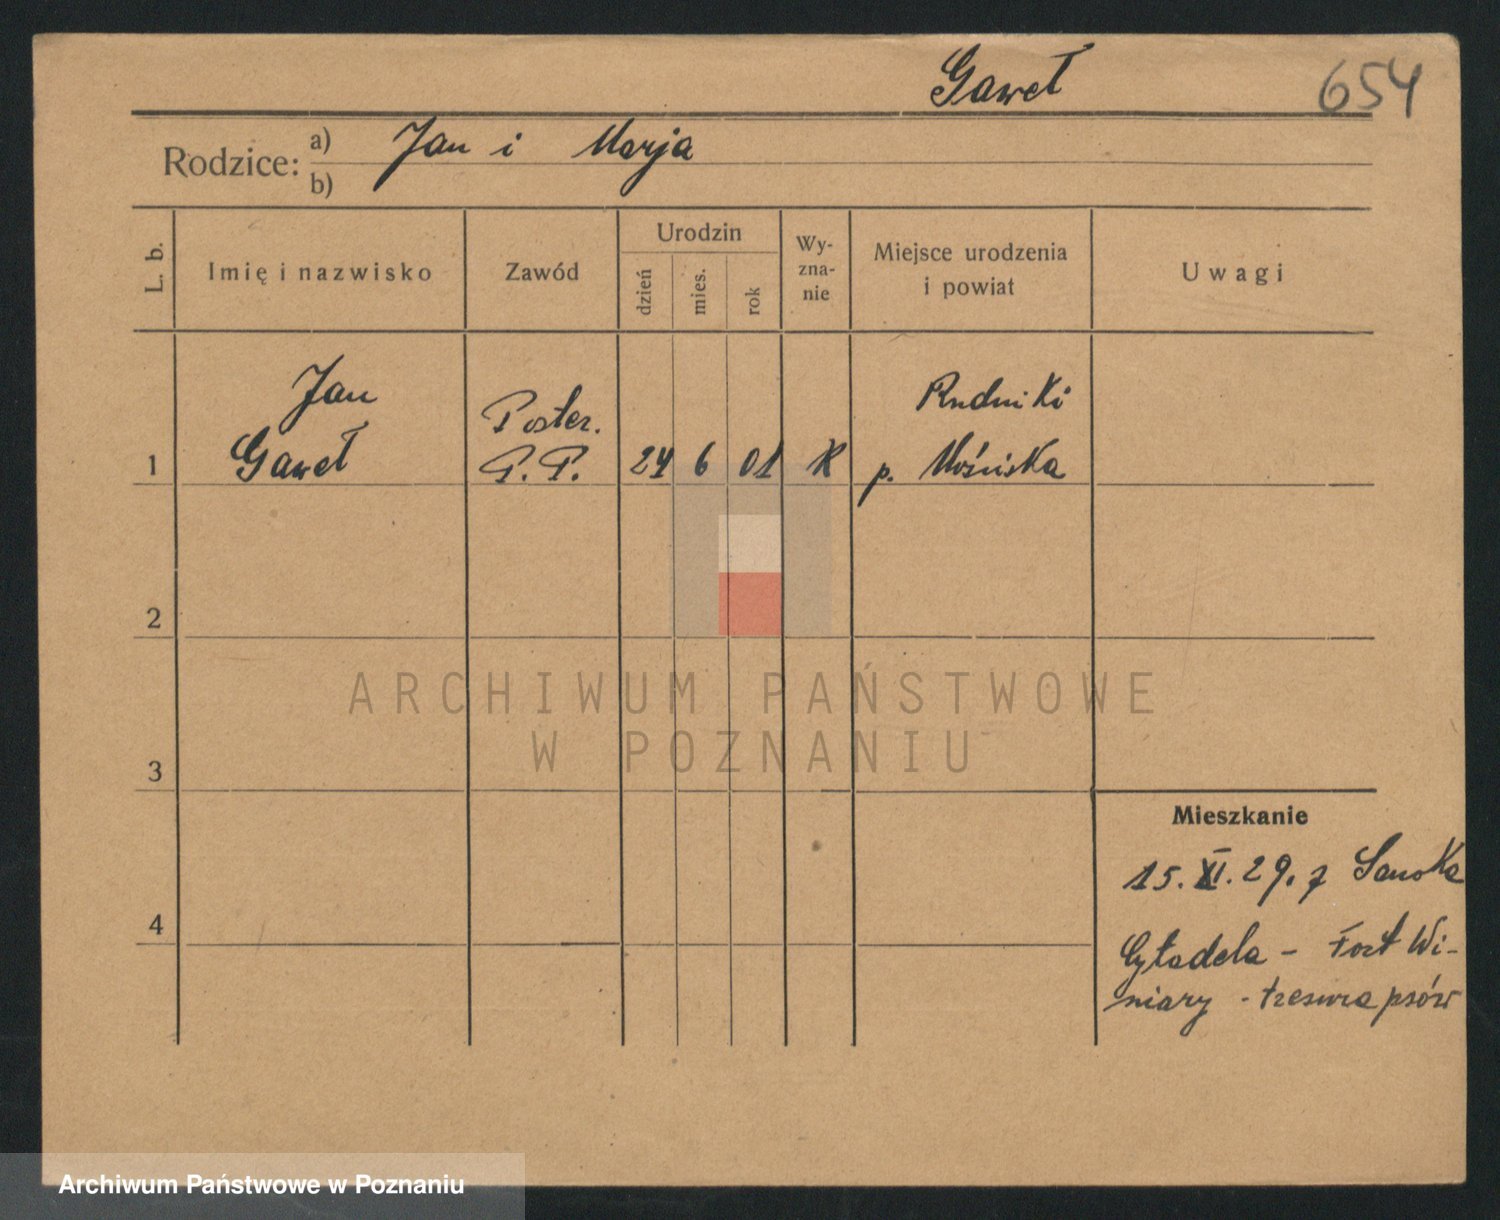 Gaweł
654
Rodzice: a) Jan i Marja
b)
L. b.
Imię i nazwisko
Zawód
Urodzin
dzień
mies.
rok
Wy-
zna-
nie
Miejsce urodzenia
i powiat
Uwagi
Jan
Poster.
Rudniki
1 Gaweł P. P. 24 6 01 K p. Mościska
2
3
4
Mieszkanie
15. XI. 29. z Sanoka
Cytadela - Fort Wi-
niary - tresura psów
ARCHIWUM PAŃSTWOWE
W POZNANIU
Archiwum Państwowe w Poznaniu